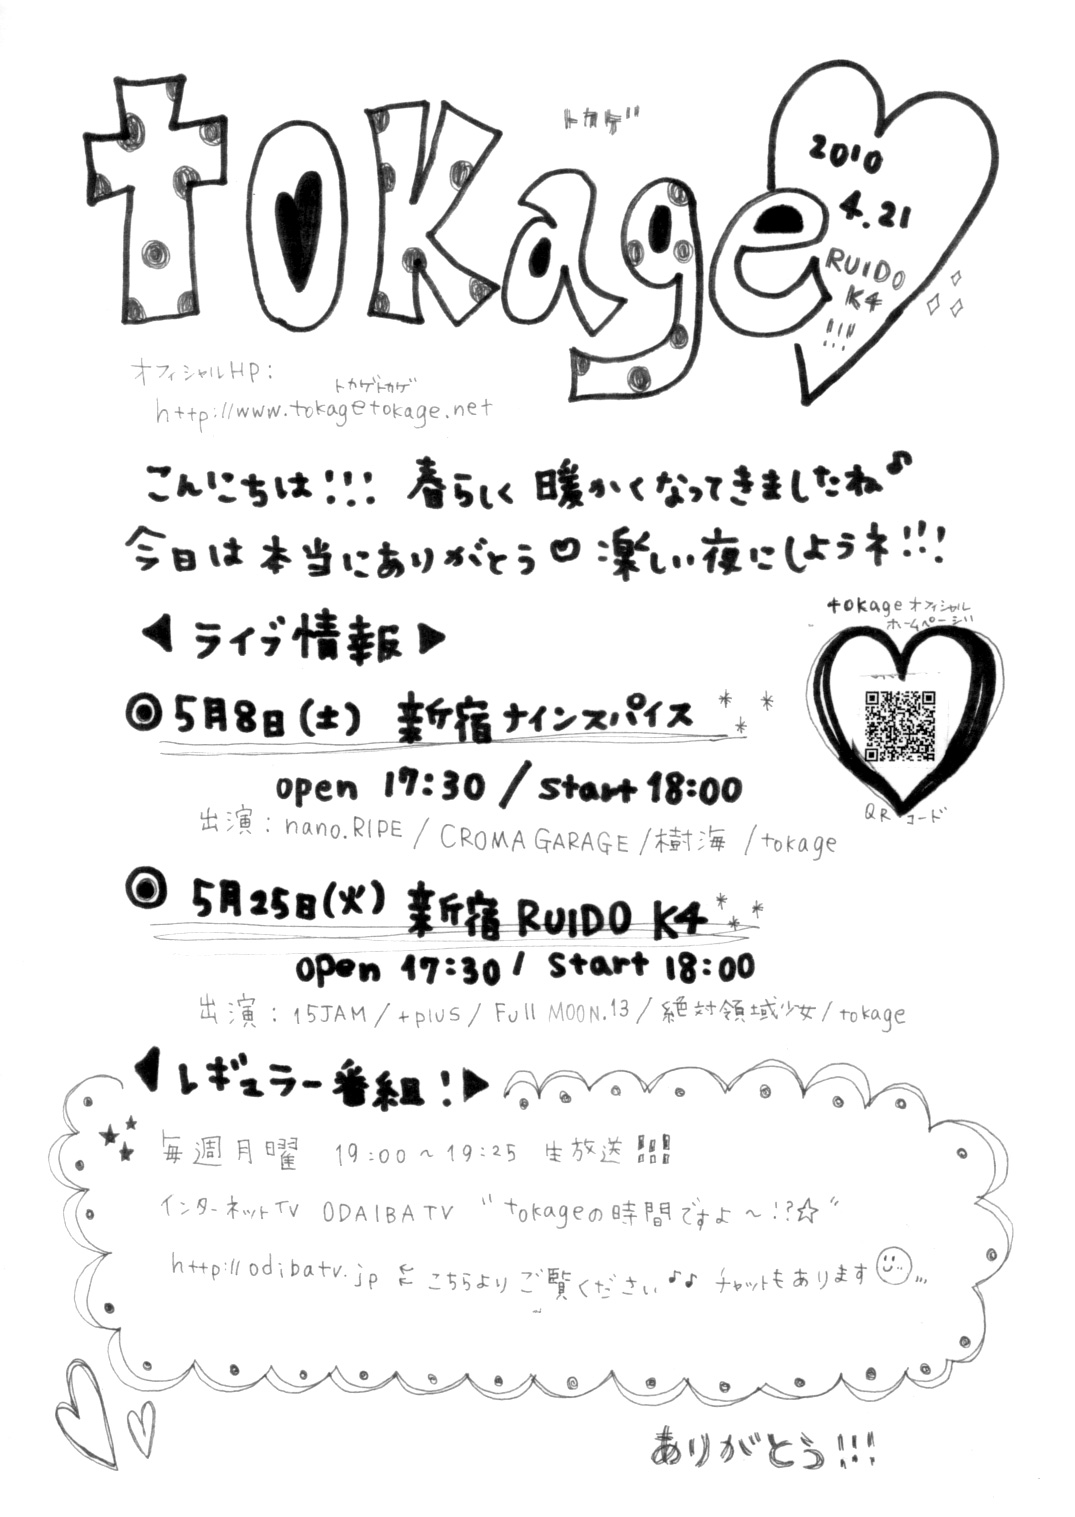 トカゲ
tokage
2010
4.21
RUIDO
K4
!!!
オフィシャルHP:
トカゲトカゲ
http://www.tokagetokage.net
こんにちは!!! 春らしく 暖かくなってきましたね♪
今日は 本当にありがとう♡ 楽しい夜にしようネ!!!
tokage オフィシャル
ホームページ
QRコード
◀ ライブ情報 ▶
◎ 5月8日(土) 新宿ナインスパイス
open 17:30 / start 18:00
出演 : nano.RIPE / CROMA GARAGE / 樹海 / tokage
◎ 5月25日(火) 新宿 RUIDO K4
open 17:30 / start 18:00
出演 : 15JAM / +plus / Full MOON.13 / 絶対領域少女 / tokage
◀ レギュラー番組! ▶
毎週月曜 19:00~19:25 生放送!!!
インターネットTV ODAIBA TV "tokageの時間ですよ~!?☆"
http://odibatv.jp こちらより ご覧ください♪♪ チャットもあります
ありがとう!!!